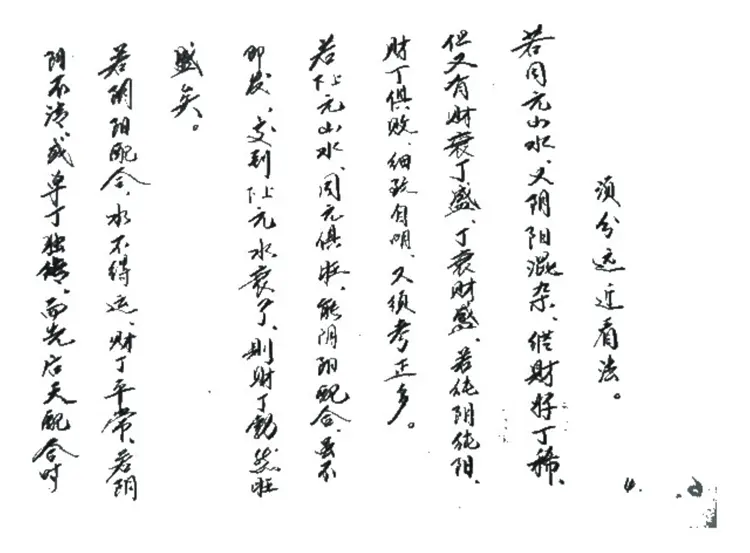 须分远近看法。
若同元山水、又阴阳混杂、纵财好丁稀、
但又有财衰丁盛、丁衰财盛、若纯阴纯阳、
财丁俱败、细玩自明、又须考正多。
若下上元山水、同元俱旺、能阴阳配合、虽不
即发、交到下上元水衰了、则财丁勃然旺
盛矣。
若阴阳配合、水不得运、财丁平常、若阴
阴不清、或单丁独传、而先后天配合时